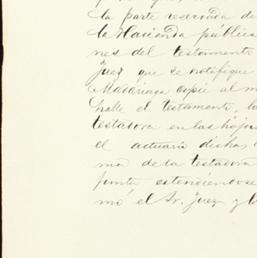 la parte reservada de
la Hacienda publica
nes del testamento
Juez que se notifique
Madariaga copie al m
halle el testamento, lo
testadora en las hojas
el actuario dichas
ma de la testadora
punto estendiendose
mó el Sr. Juez y